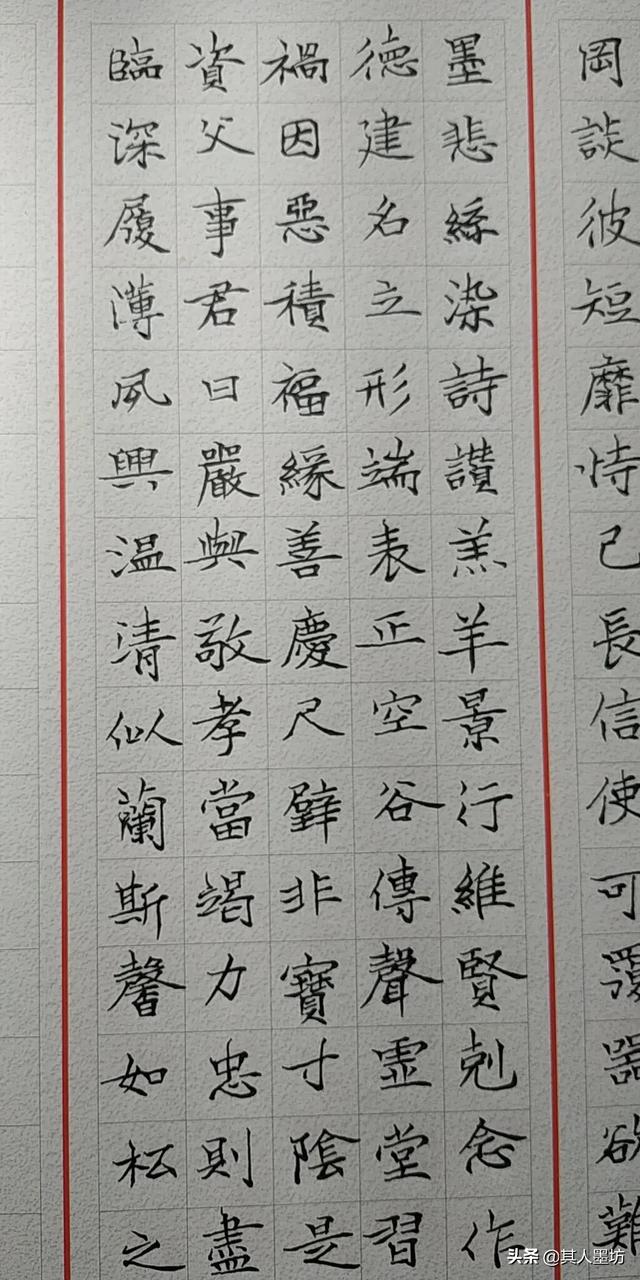 岡談彼短靡恃己長信使可覆器欲難
墨悲絲染詩讃羔羊景行維賢剋念作
德建名立形端表正空谷傳聲虛堂習
禍因惡積福緣善慶尺璧非寶寸陰是
資父事君曰嚴與敬孝當竭力忠則盡
臨深履薄夙興温凊似蘭斯馨如松之
头条 @其人墨坊